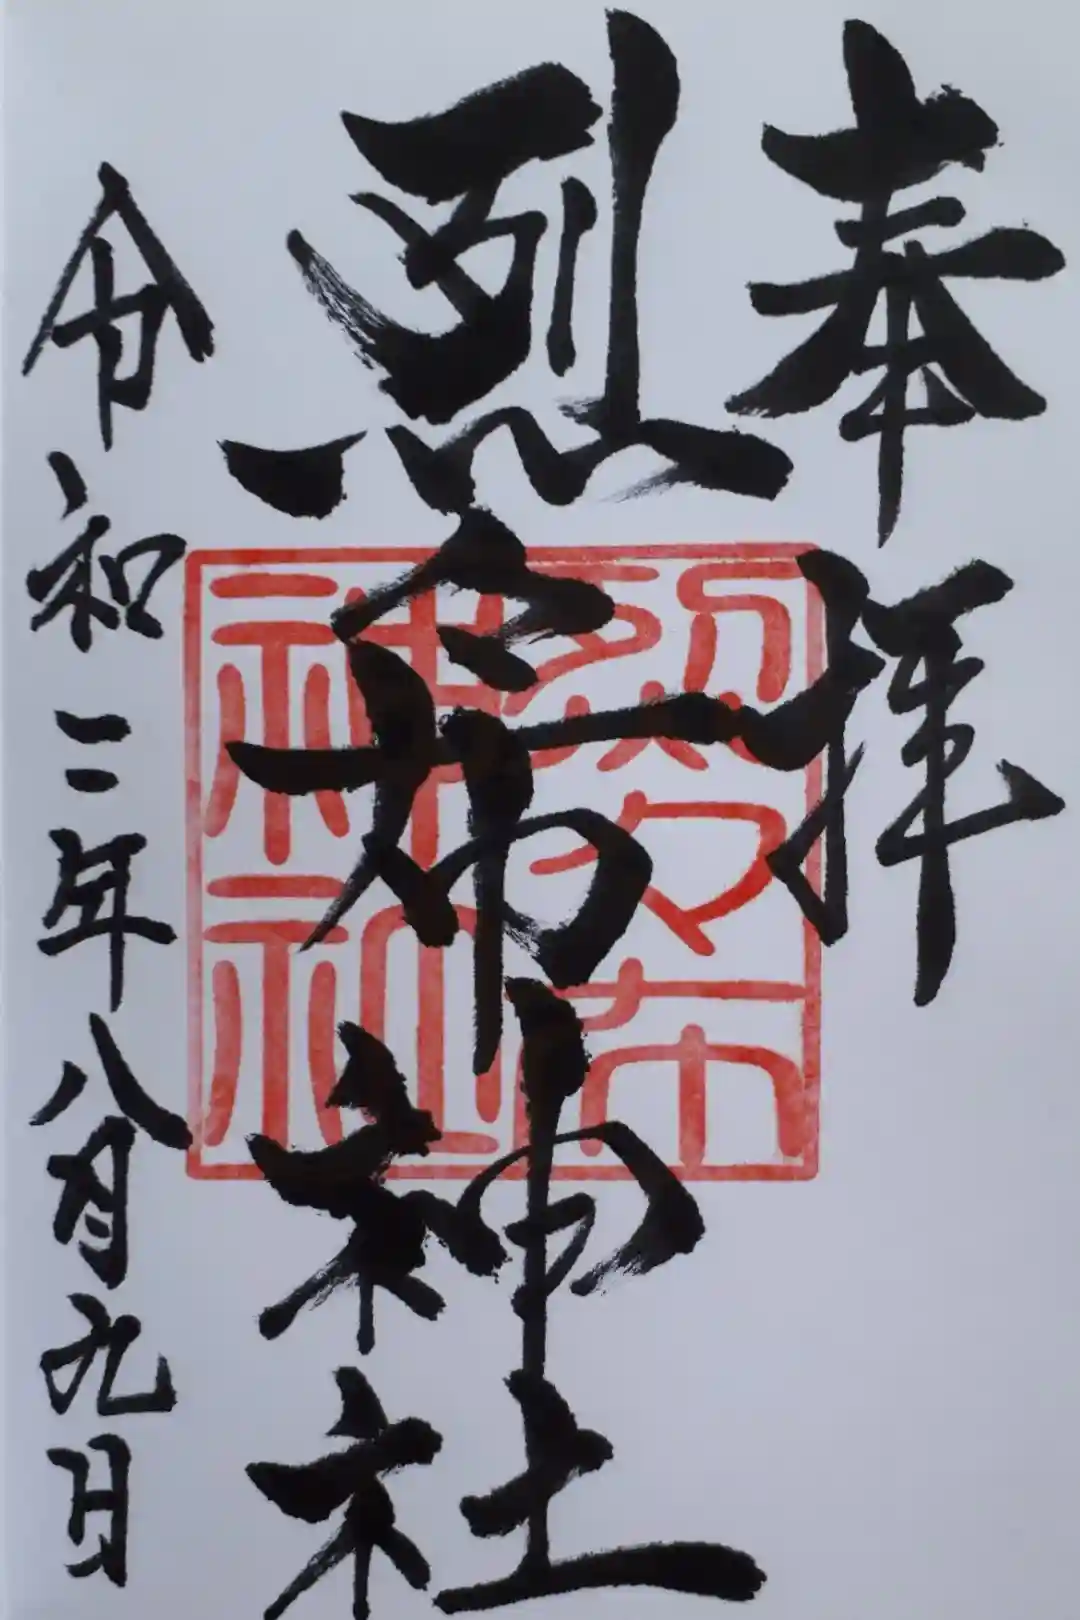 奉拝
烈々布神社
烈々布
神社
令和二年八月九日